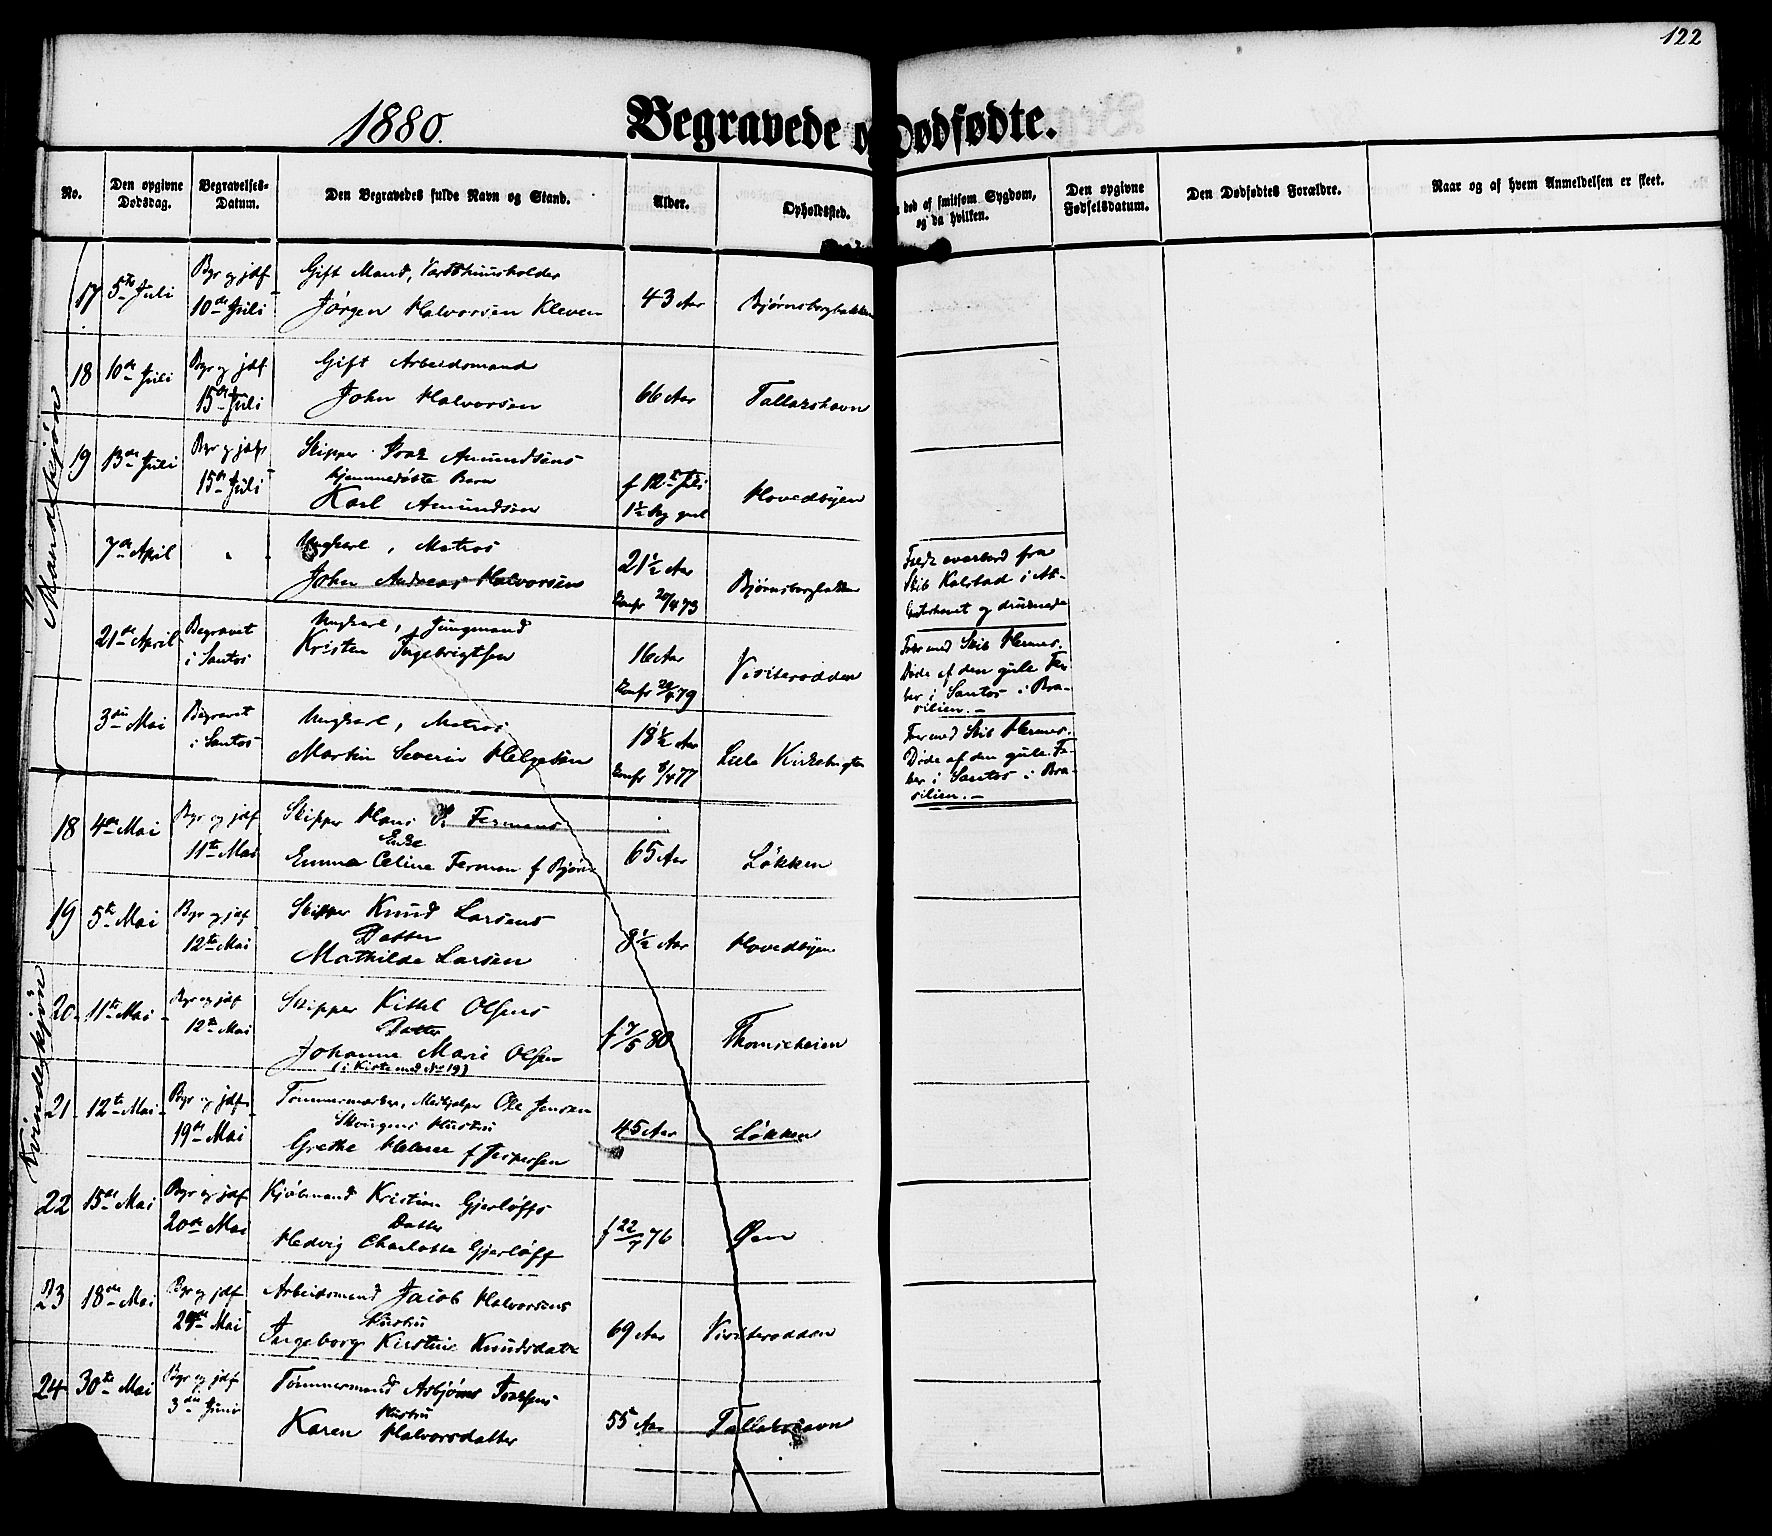 122
1880.
Begravede o Dødfødte.
No.
Den opgivne Dødsdag.
Begravelses-Datum.
Den Begravedes fulde Navn og Stand.
Alder.
Opholdssted.
død af smitsom Sygdom, og da hvilken.
Den opgivne Fødselsdatum.
Den Dødfødtes Forældre.
Naar og af hvem Anmeldelsen er skeet.
Mandskjøn
17 5te Juli Bgr og jdf 10de Juli
Gift Mand,
Jørgen Halvorsen Kleven
43 Aar Bjørnsborgbakken
18 10de Juli Bgr og jdf 15de Juli
Gift Arbeidsmand
John Halvorsen
66 Aar Tallakshavn
19 13de Juli Bgr og jdf 15de Juli
Skipper Amundsens
hjemmedøbte Barn
Karl Amundsen
f 12te Juli
1½ Dag gml
Hovedbyen
7de April "
Ungkarl, Matros
John Andreas Halvorsen
21½ Aar
Konf 20/4 73
Bjørnsborgbakken
Faldt overbord fra
Skib Kolstad i At-
lanterhavet og druknede
21de April Begravet i Santos
Ungkarl, Jungmand
Kristen Ingebrigtsen
16 Aar
Konf 20/4 79
Visiterodden
Foer med Skib Hermes.
Døde af den gule Fe-
ber i Santos i Bra-
silien.-
3die Mai Begravet i Santos
Ungkarl, Matros
Martin Severin Helgesen
18½ Aar
Konf 8/4 77
Lille Kirkebugten
Foer med Skib Hermes.
Døde af den gule Fe-
ber i Santos i Bra-
silien.-
Kvindeskjøn
18 4de Mai Bgr og jdf 11te Mai
Skipper Hans P. Fermans
Enke
Emma Celine Ferman f Bjørn
65 Aar Løkken
19 5te Mai Bgr og jdf 12te Mai
Skipper Knud Larsens
Datter
Mathilde Larsen
8½ Aar Hovedbyen
20 11te Mai Bgr og jdf 12te Mai
Skipper Kittel Olsens
Datter
Johanne Marie Olsen
(i Kiste med No 19)
f 7/5 80 Thomesheien
21 12te Mai Bgr og jdf 19de Mai
Tømmermærker, Medhjelper Ole Jensen
Skvingens Hustru
Grethe Helene f Jespersen
45 Aar Løkken
22 15de Mai Bgr og jdf 20de Mai
Kjøbmand Kristian Gjerløffs
Datter
Hedvig Charlotte Gjerløff
f 22/7 76 Øen
23 18de Mai Bgr og jdf 24de Mai
Arbeidsmand Jacob Halvorsens
Hustru
Ingeborg Kirstine Knudsdatr
69 Aar Visiterodden
24 30te Mai Bgr og jdf 3die Juni
Tømmermand Asbjørns
Hustru
Karen Halvorsdatter
55 Aar Tallakshavn